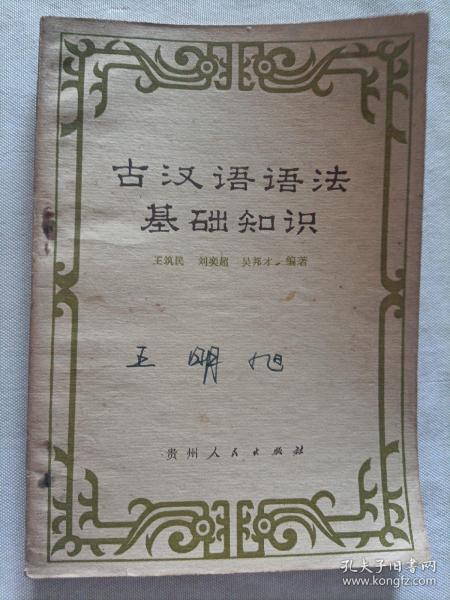 古汉语语法
基础知识
王筑民 刘奕超 吴邦才 编著
王明旭
贵州人民出版社
孔夫子旧书网
www.kongfz.com